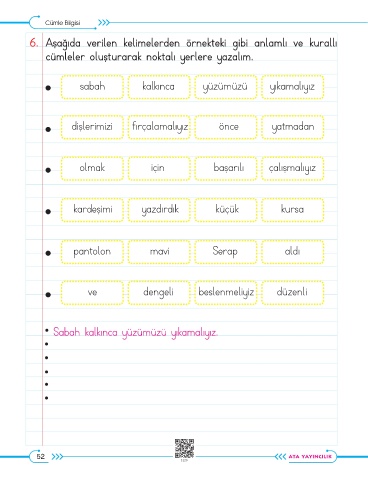 Cümle Bilgisi
6. Aşağıda verilen kelimelerden örnekteki gibi anlamlı ve kurallı
cümleler oluşturarak noktalı yerlere yazalım.
• sabah kalkınca yüzümüzü yıkamalıyız
• dişlerimizi fırçalamalıyız önce yatmadan
• olmak için başarılı çalışmalıyız
• kardeşimi yazdırdık küçük kursa
• pantolon mavi Serap aldı
• ve dengeli beslenmeliyiz düzenli
• Sabah kalkınca yüzümüzü yıkamalıyız.
•
•
•
•
•
52
ATA YAYINCILIK